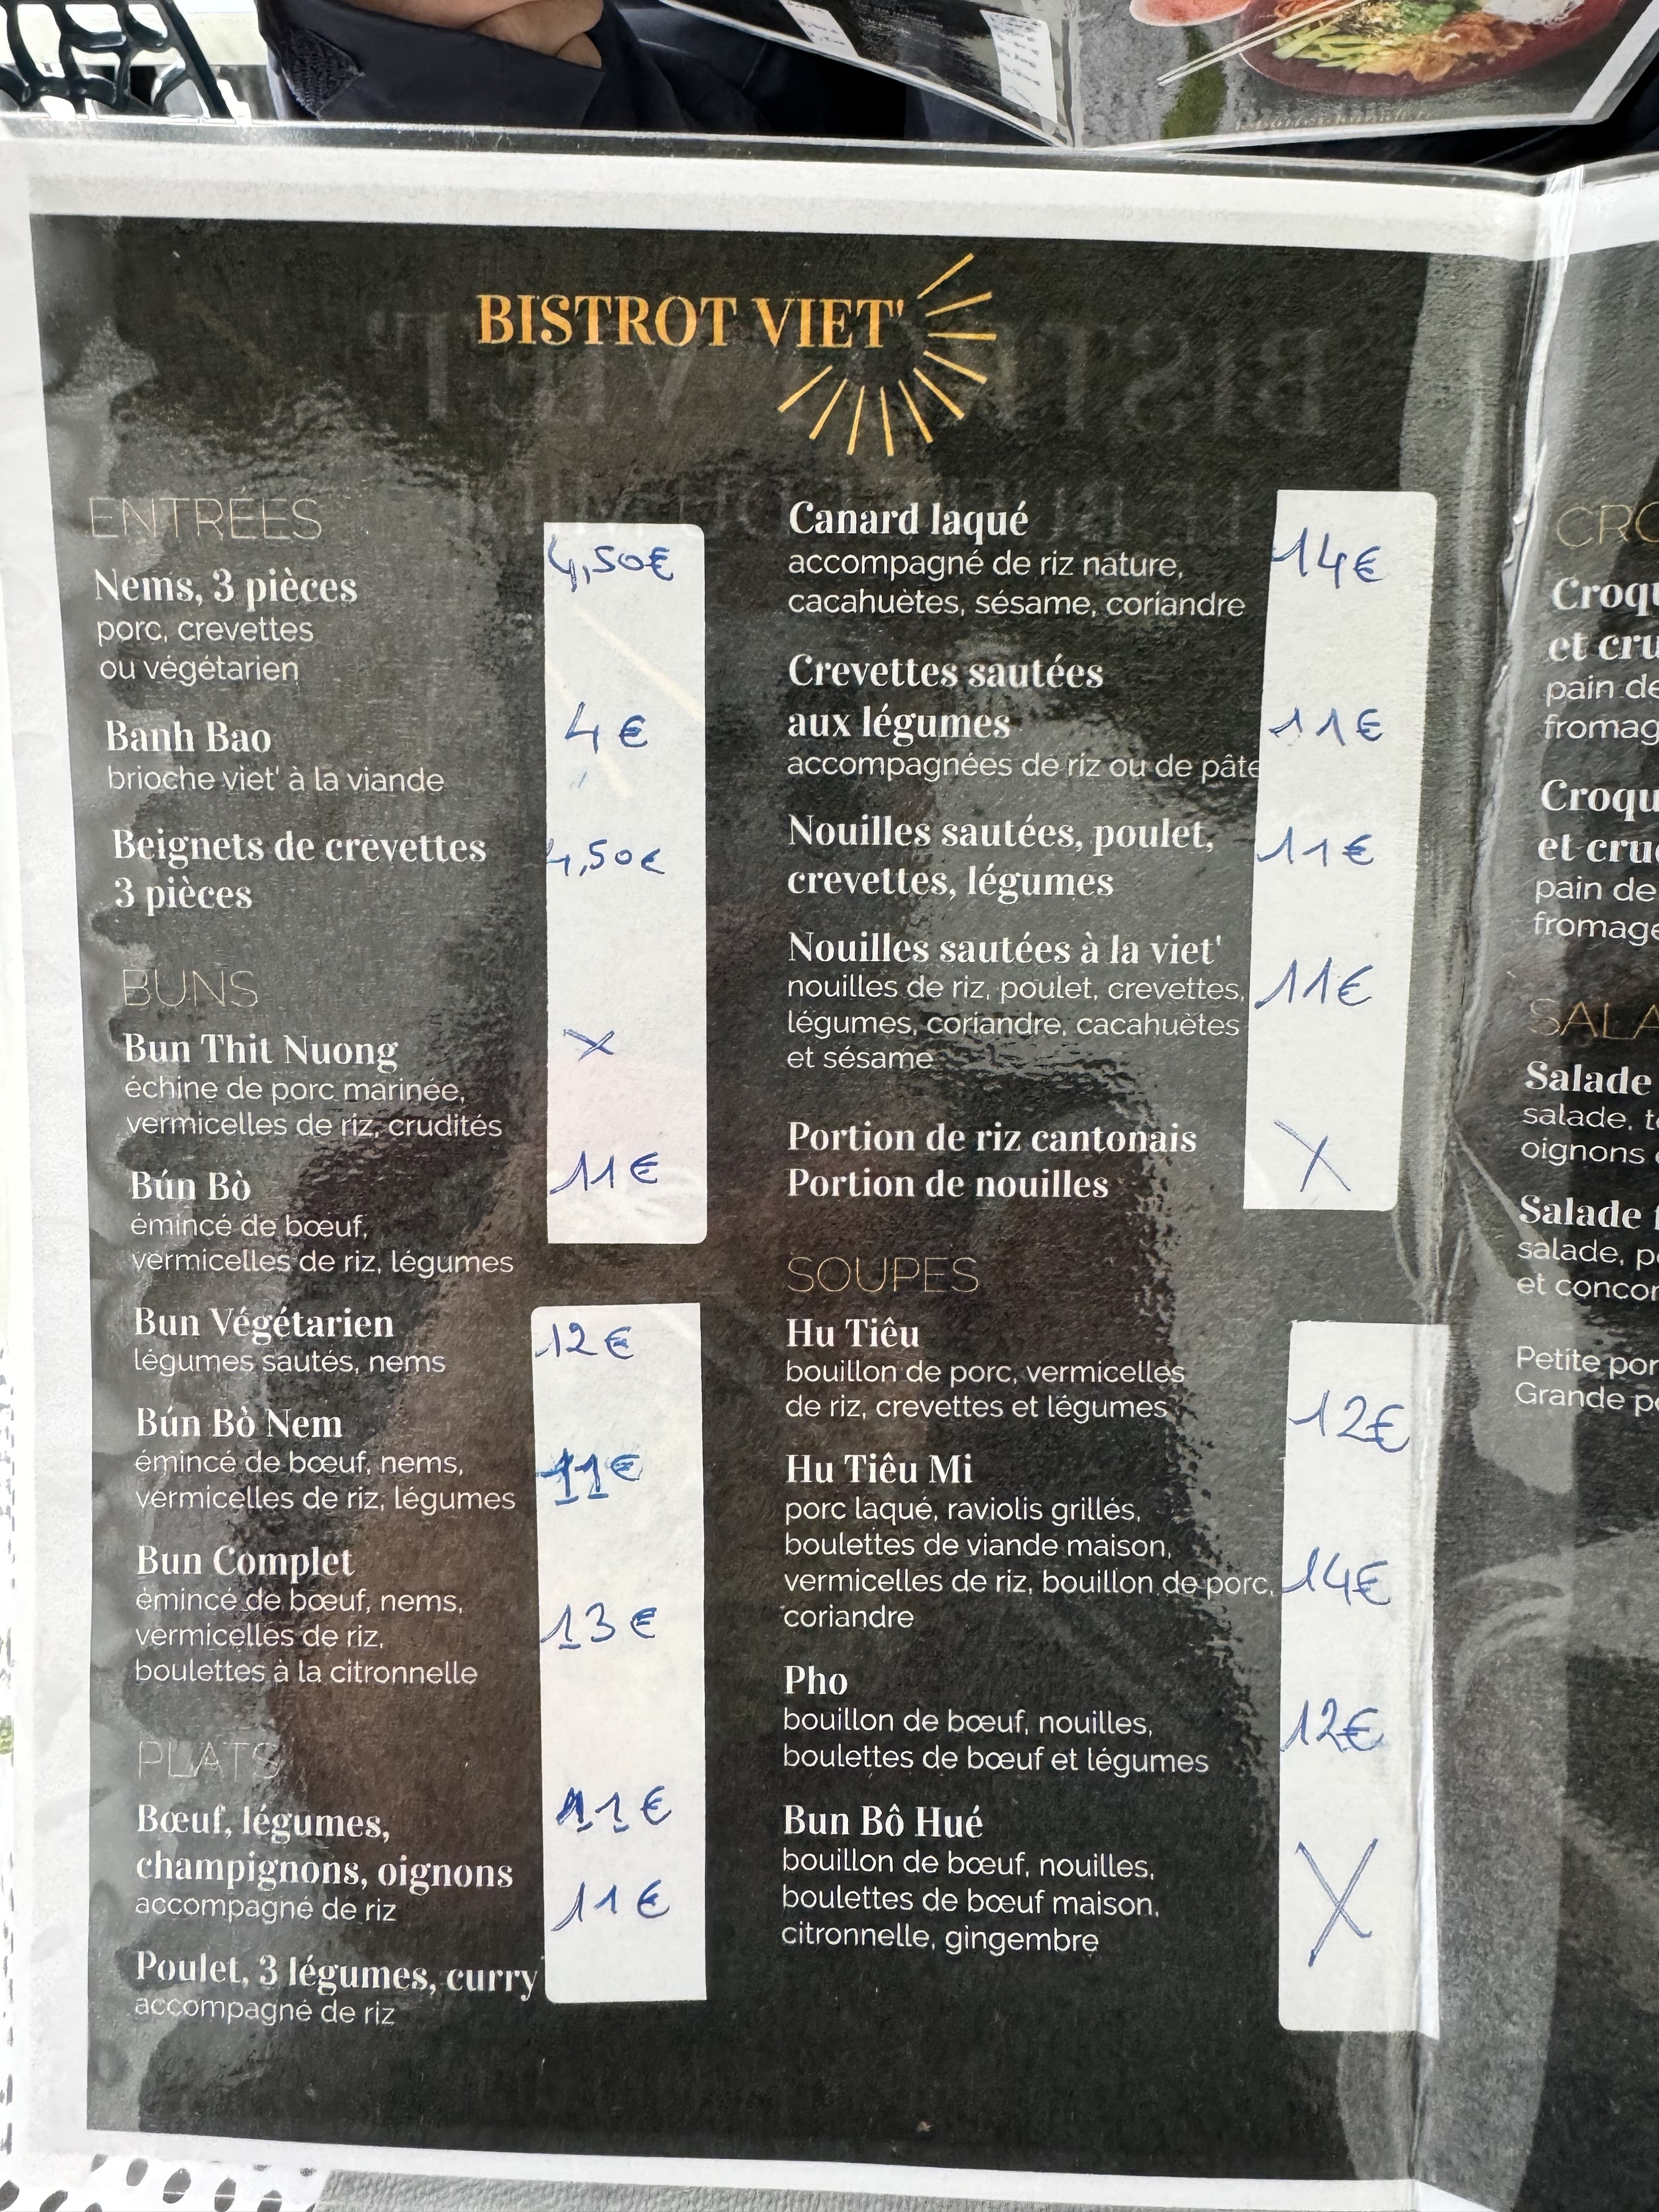 BISTROT VIET'
ENTRÉES
Nems, 3 pièces 4,50€
porc, crevettes
ou végétarien
Banh Bao 4€
brioche viet' à la viande
Beignets de crevettes 4,50€
3 pièces
BUNS
Bun Thit Nuong X
échine de porc marinée,
vermicelles de riz, crudités
Bún Bò 11€
émincé de bœuf,
vermicelles de riz, légumes
Bun Végétarien 12€
légumes sautés, nems
Bún Bò Nem
émincé de bœuf, nems, 11€
vermicelles de riz, légumes
Bun Complet
émincé de bœuf, nems, 13€
vermicelles de riz,
boulettes à la citronnelle
PLATS
Bœuf, légumes, 11€
champignons, oignons
accompagné de riz 11€
Poulet, 3 légumes, curry
accompagné de riz
Canard laqué
accompagné de riz nature, 14€
cacahuètes, sésame, coriandre
Crevettes sautées
aux légumes 11€
accompagnées de riz ou de pâte
Nouilles sautées, poulet, 11€
crevettes, légumes
Nouilles sautées à la viet'
nouilles de riz, poulet, crevettes, 11€
légumes, coriandre, cacahuètes
et sésame
Portion de riz cantonais X
Portion de nouilles
SOUPES
Hu Tiêu
bouillon de porc, vermicelles
de riz, crevettes et légumes 12€
Hu Tiêu Mi
porc laqué, raviolis grillés,
boulettes de viande maison,
vermicelles de riz, bouillon de porc, 14€
coriandre
Pho
bouillon de bœuf, nouilles, 12€
boulettes de bœuf et légumes
Bun Bô Hué
bouillon de bœuf, nouilles, X
boulettes de bœuf maison,
citronnelle, gingembre
CRO
Croqu
et cru
pain de
fromag
Croqu
et cru
pain de
fromage
SALA
Salade
salade, to
oignons
Salade
salade, p
et concor
Petite por
Grande po